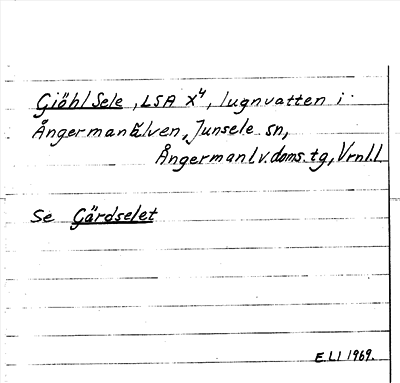 Giöhl Sele, LSA X4, lugnvatten i
Ångermanälven, Junsele sn,
Ångermanl.v.doms.tg, Vrnl.l
Se Gärdselet
E.LI 1969.